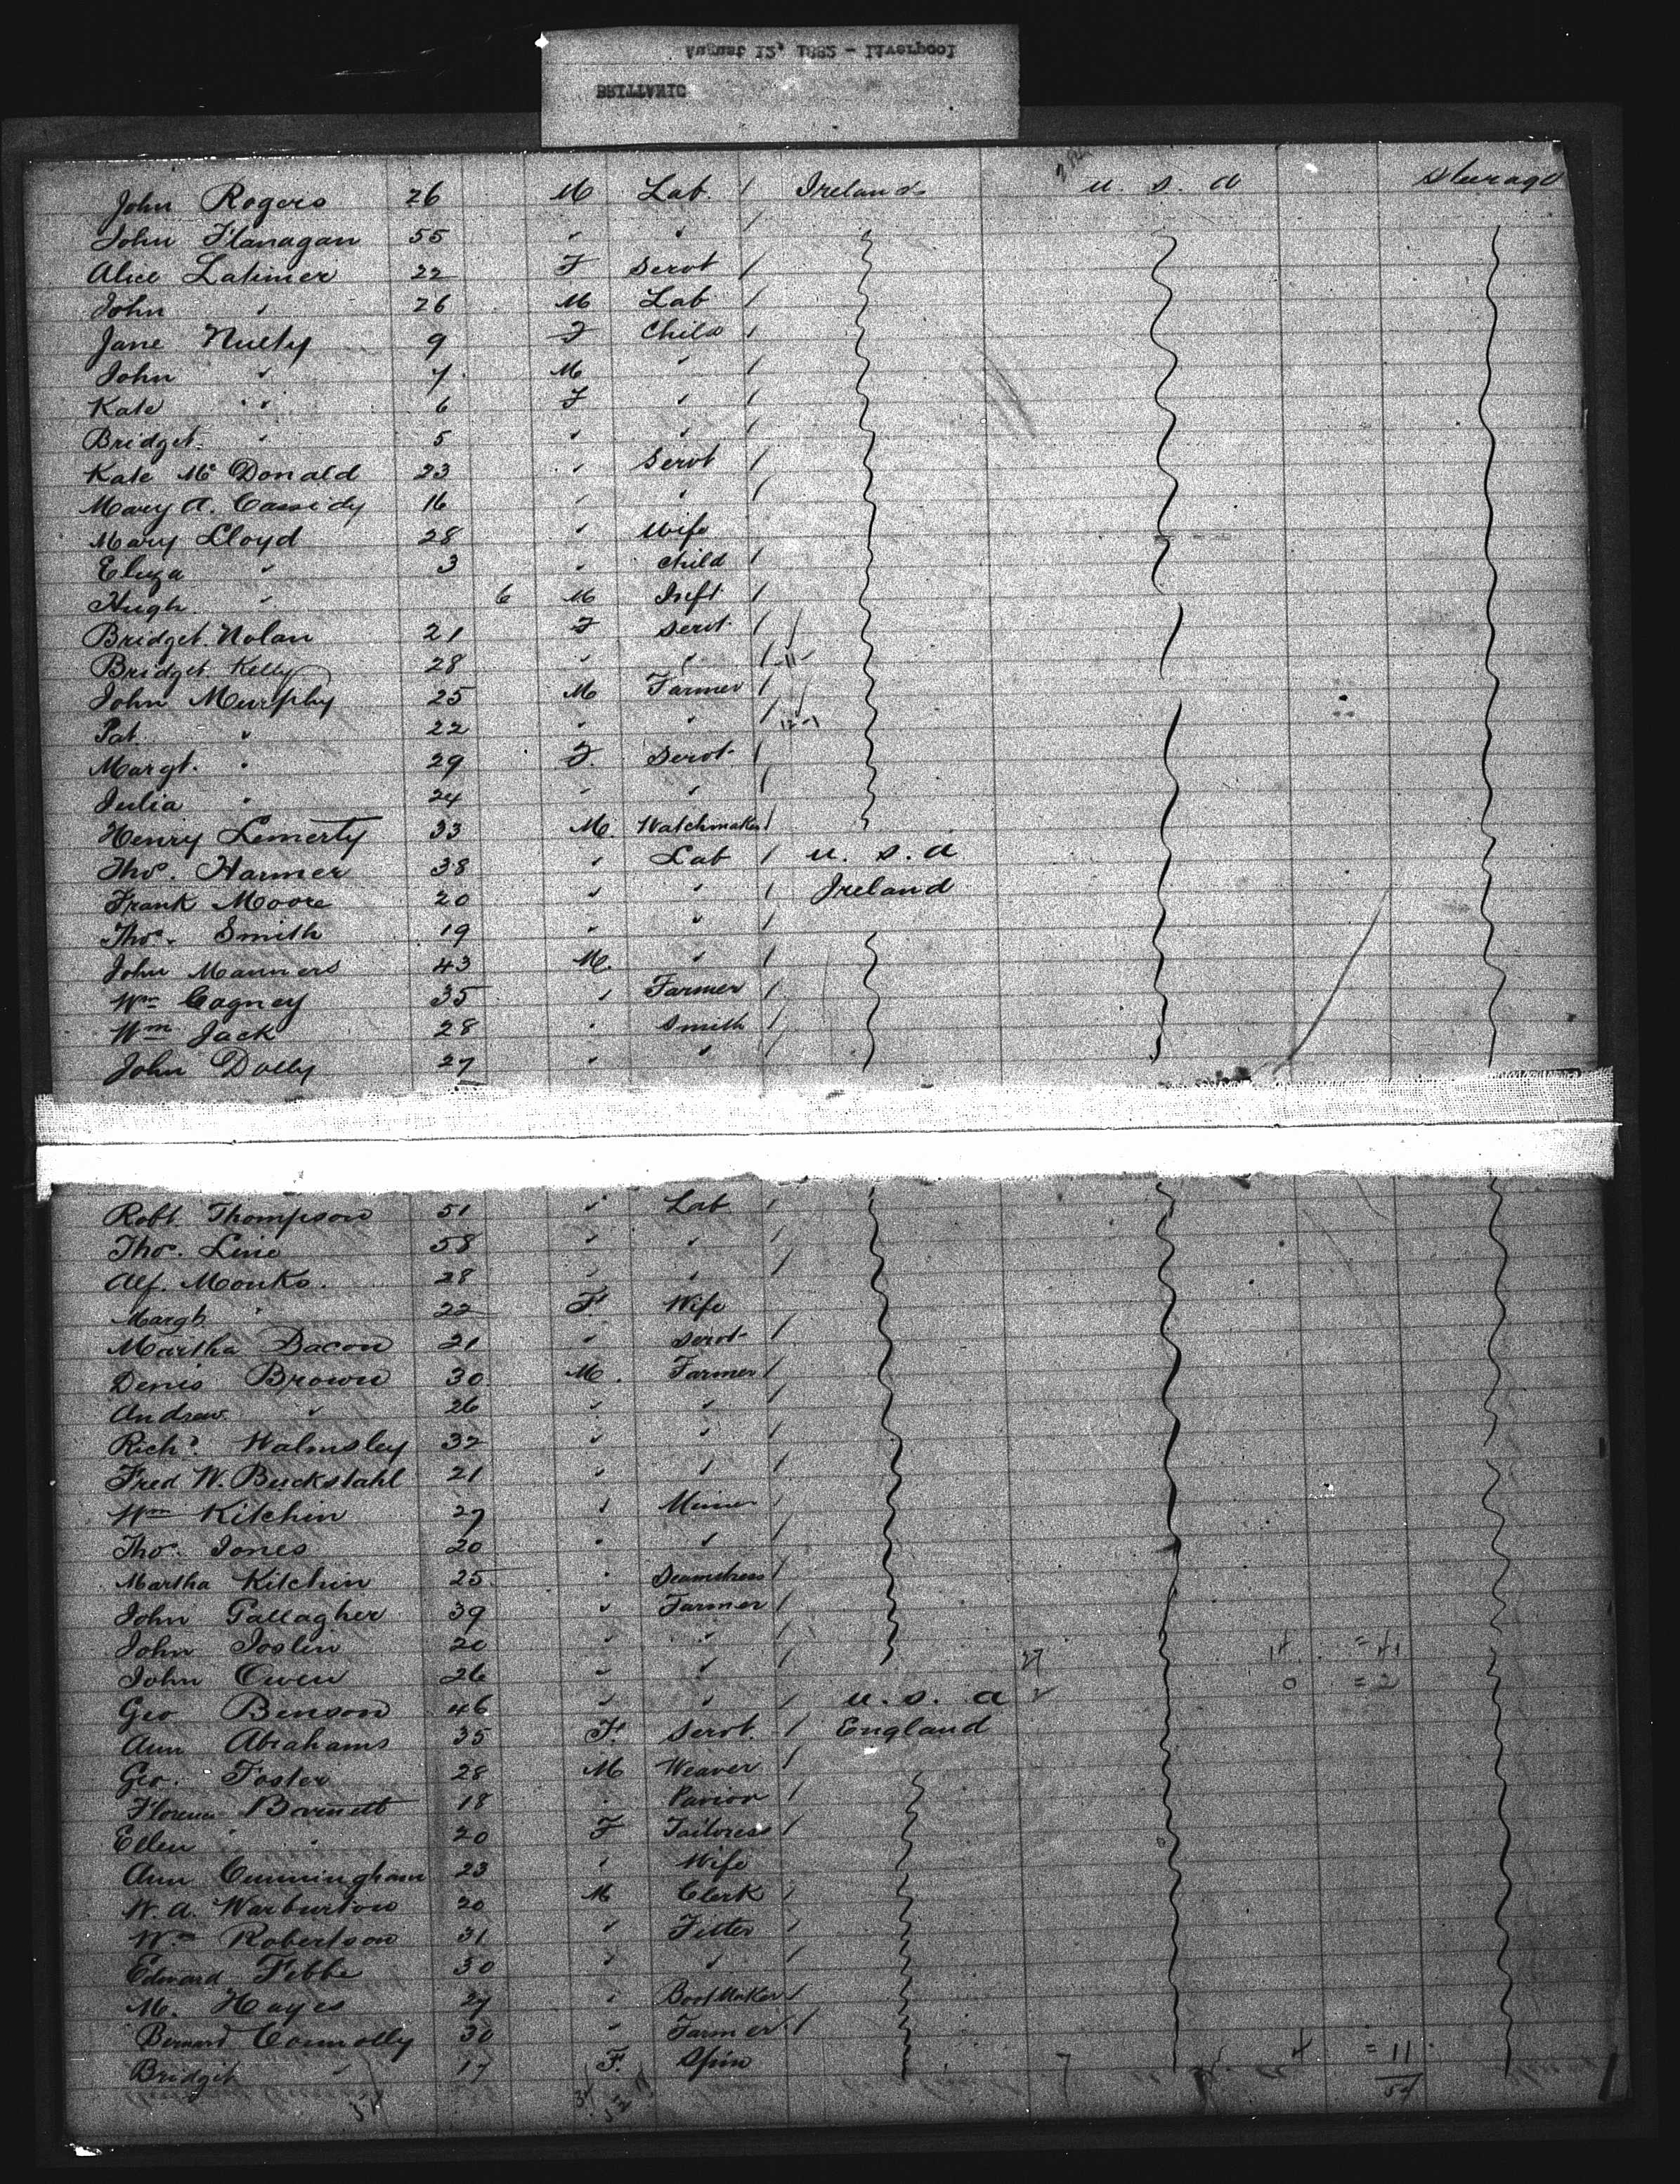 August 12, 1882 - Liverpool
BRITTANIC
John Rogers 26 M Lab / Ireland U. S. A Steerage
John Flanagan 55 " " /
Alice Latimer 22 F Servt /
John " 26 M Lab /
Jane Nulty 9 F Child /
John " 7 M " /
Kate " 6 F " /
Bridget " 5 " " /
Kate Mc Donald 23 " Servt /
Mary A. Cassidy 16 " " /
Mary Lloyd 28 " Wife
Eliza " 3 " Child /
Hugh " 6 M Inft /
Bridget Nolan 21 F Servt /
Bridget Kelly 28 " " / 11
John Murphy 25 M Farmer /
Pat " 22 " " /
Margt. " 29 F. Servt /
Julia " 24 " " /
Henry Lemerty 33 M. Watchmaker /
Thos. Harmer 38 " Lab / U. S. A
Frank Moore 20 " " / Ireland
Thos. Smith 19 " " /
John Manners 43 M. " /
Wm Cagney 35 " Farmer /
Wm Jack 28 " Smith /
John Dolly 27 " " /
Robt Thompson 51 " Lab /
Thos. Line 58 " " /
Alf. Monks. 28 " " /
Margt " 22 F Wife
Martha Bacon 21 " Servt /
Denis Brown 30 M. Farmer /
Andrew " 26 " " /
Richd. Walmsley 32 " " /
Fred W. Buckstahl 21 " " /
Wm Kitchin 27 " Miner /
Thos. Jones 20 " " /
Martha Kitchin 25 " Seamstress /
John Gallagher 39 " Farmer /
John Joslin 20 " " /
John Owen 26 " " /
Geo Benson 46 " " / U. S. A
0 = 2
Ann Abrahams 35 F. Servt. / England
Geo. Foster 28 M Weaver /
Florence 18 " Pavior /
Ellen " 20 F Tailoress /
Ann Cunningham 23 " Wife
W. A. Warburton 20 M Clerk /
Wm Robertson 31 " Fitter /
Edward Febbe 30 " " /
M. Hayes 27 " BootMaker /
Bernard Connolly 30 " Farmer /
Bridget " 17 F. Spin
= 11